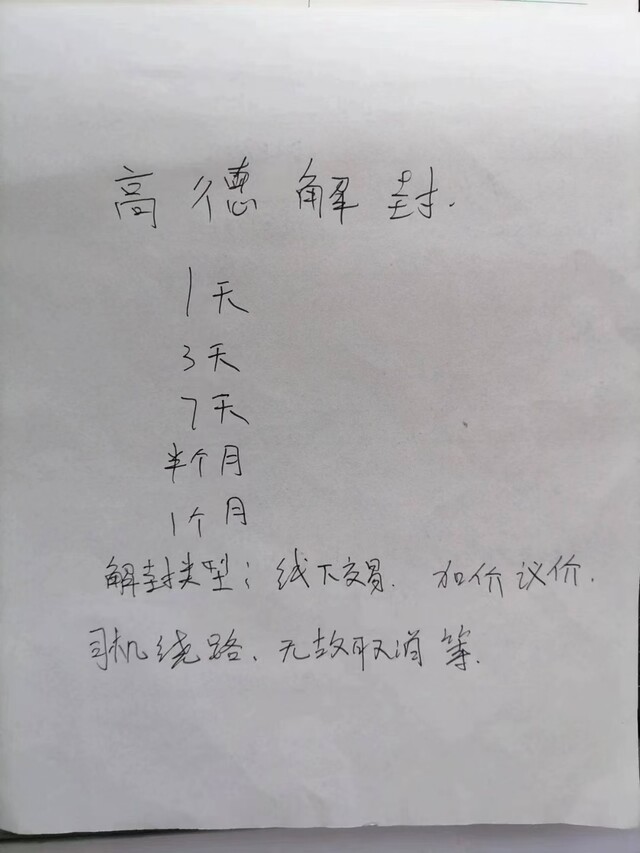 高德解封.
1天
3天
7天
半个月
1个月
解封类型：线下交易. 加价议价.
司机绕路、无故取消等.